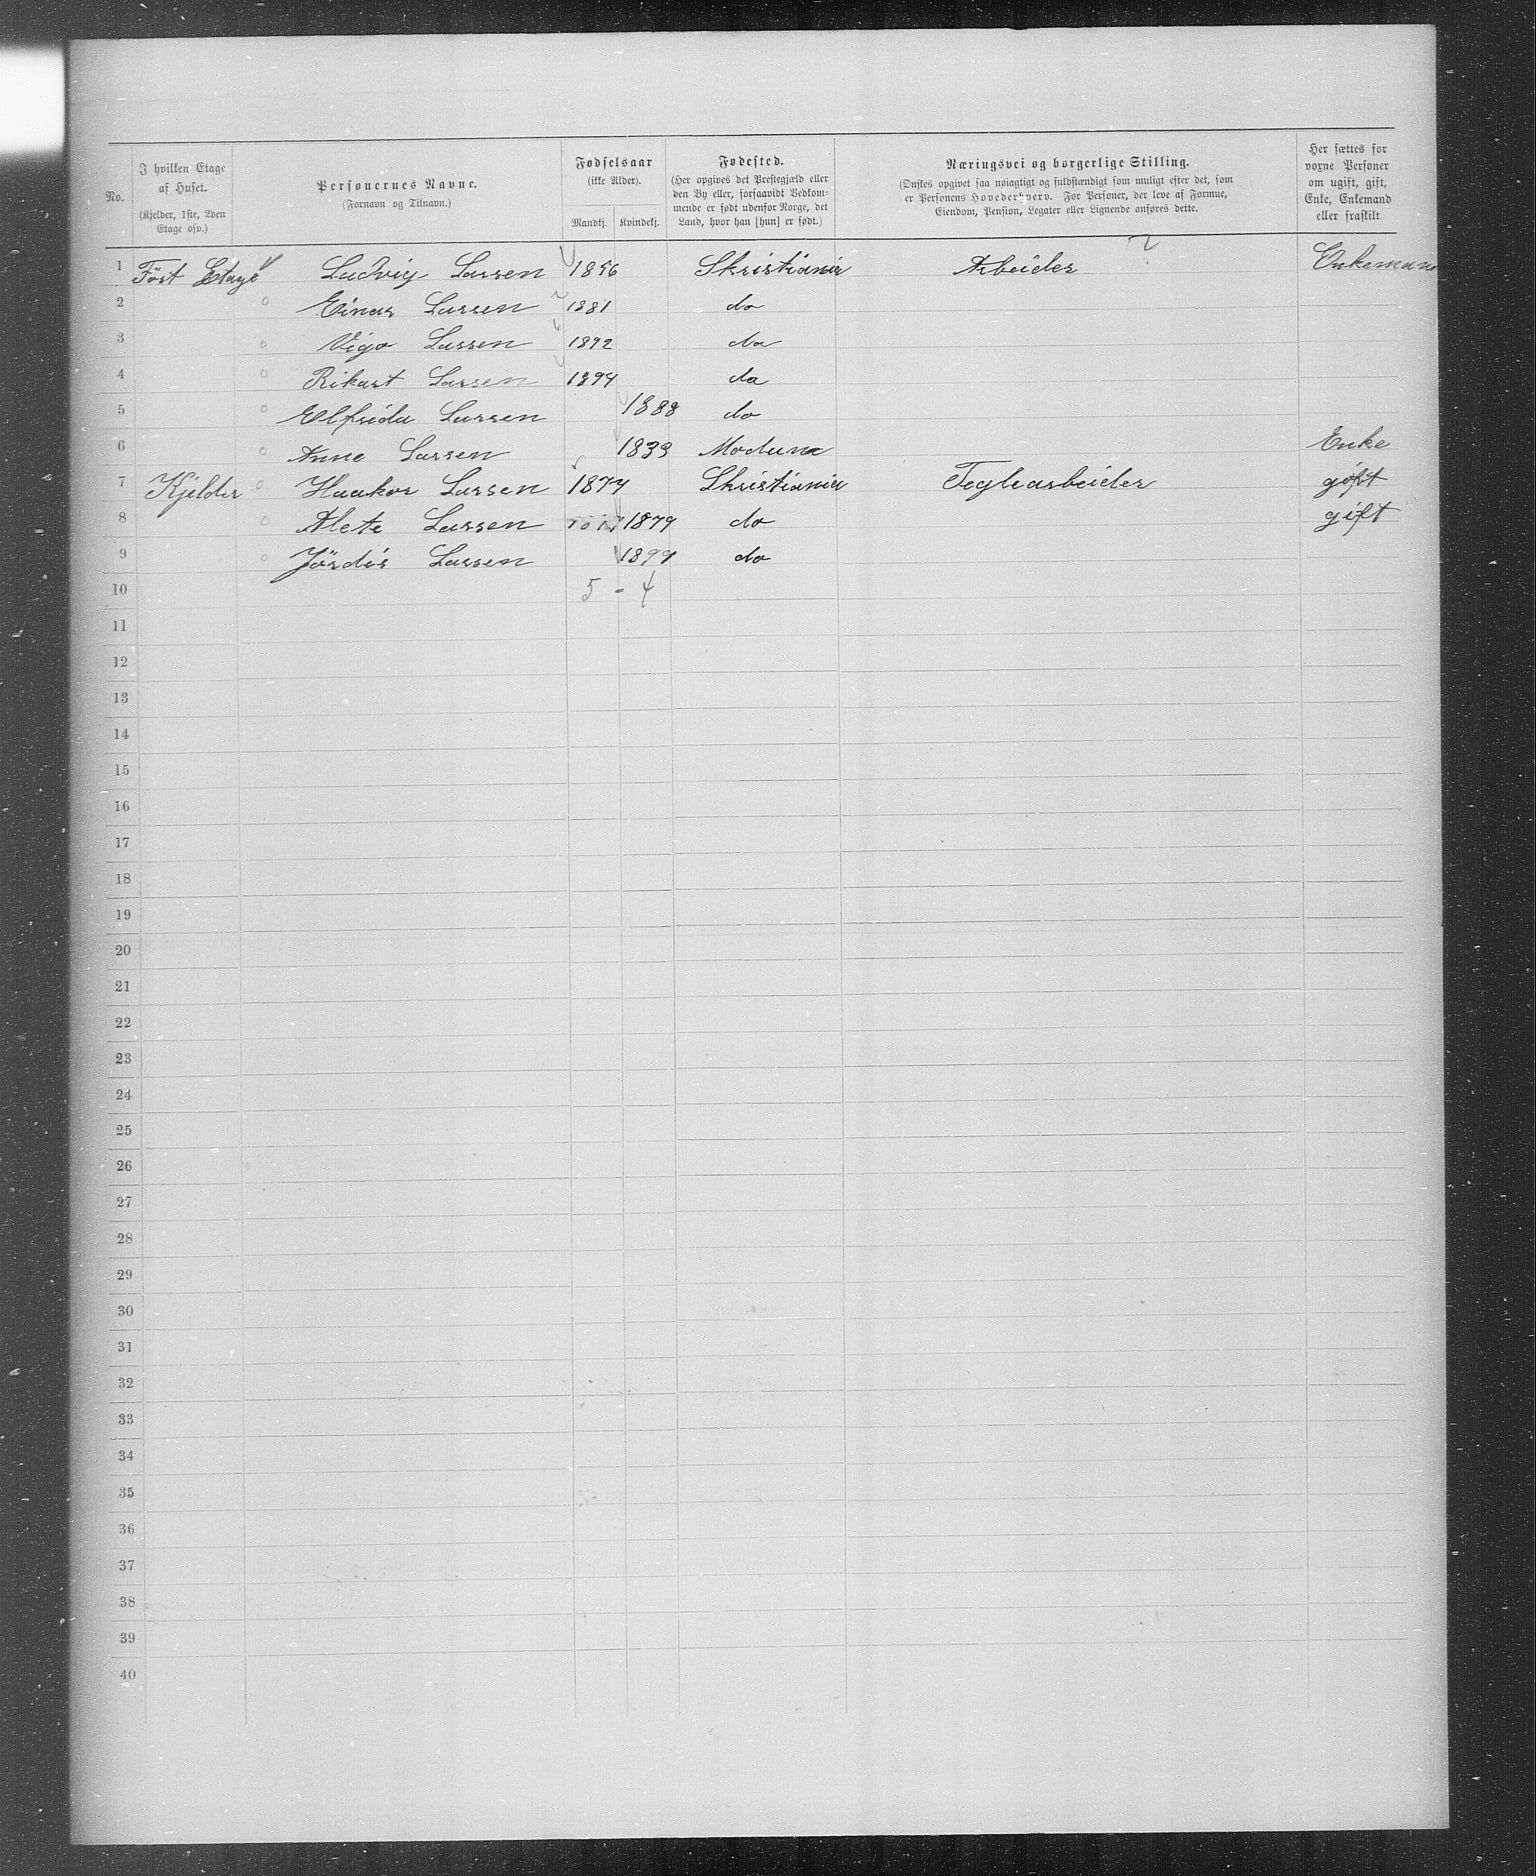 No.
I hvilken Etage af Huset.
(Kjelder, 1ste, 2den Etage osv.)
Personernes Navne.
(Fornavn og Tilnavn.)
Fødselsaar
(ikke Alder).
Mandkj. Kvindekj.
Fødested.
(Her opgives det Prestegjæld eller den By eller, forsaavidt Vedkommende er født udenfor Norge, det Land, hvor han [hun] er født.)
Næringsvei og borgerlige Stilling.
(Ønskes opgivet saa nøiagtigt og fuldstændigt som muligt efter det, som er Personens Hovederhverv. For Personer, der leve af Formue, Eiendom, Pension, Legater eller Lignende anføres dette.
Her sættes for voxne Personer om ugift, gift, Enke, Enkemand eller fraskilt
1 Först Etage Ludvig Larsen 1856 Skristiania Arbeider ? Enkemann
2 Einar Larsen 1881 do
3 Vigo Larsen 1892 do
4 Rikart Larsen 1894 do
5 Elfrida Larsen 1888 do
6 Anne Larsen 1833 Modum Enke
7 Kjelder Haakon Larsen 1874 Skristiania Teglearbeider gift
8 Alete Larsen 1879 do gift
9 Jördis Larsen 1899 do
10 5 - 4
11
12
13
14
15
16
17
18
19
20
21
22
23
24
25
26
27
28
29
30
31
32
33
34
35
36
37
38
39
40